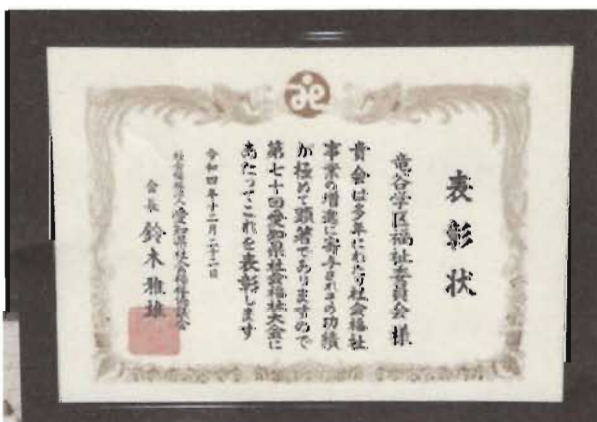 表彰状
竜谷学区福祉委員会 様
貴会は多年にわたり社会福祉
事業の増進に寄与されその功績
が極めて顕著でありますので
第七十回愛知県社会福祉大会に
あたってこれを表彰します
令和四年十二月二十二日
社会福祉法人 愛知県社会福祉協議会
会長 鈴木雅雄